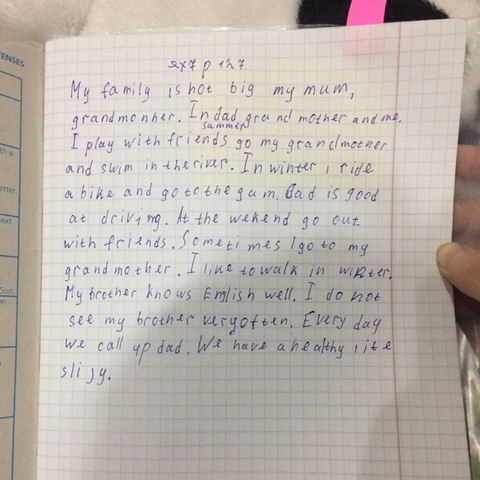 ENSES
ex7 p 127.
My family is not big my mum,
grandmonher. In dad grand mother and me.
summer
I play with friends go my grandmother
and swim in theriver. In winter i ride
a bike and go to the gum. Dad is good
at driving. At the wekend go out
with friends. Sometimes I go to my
grandmother. I like to walk in winter.
My brother knows English well. I do not
see my brother very often. Every day
we call up dad. We have a healthy life